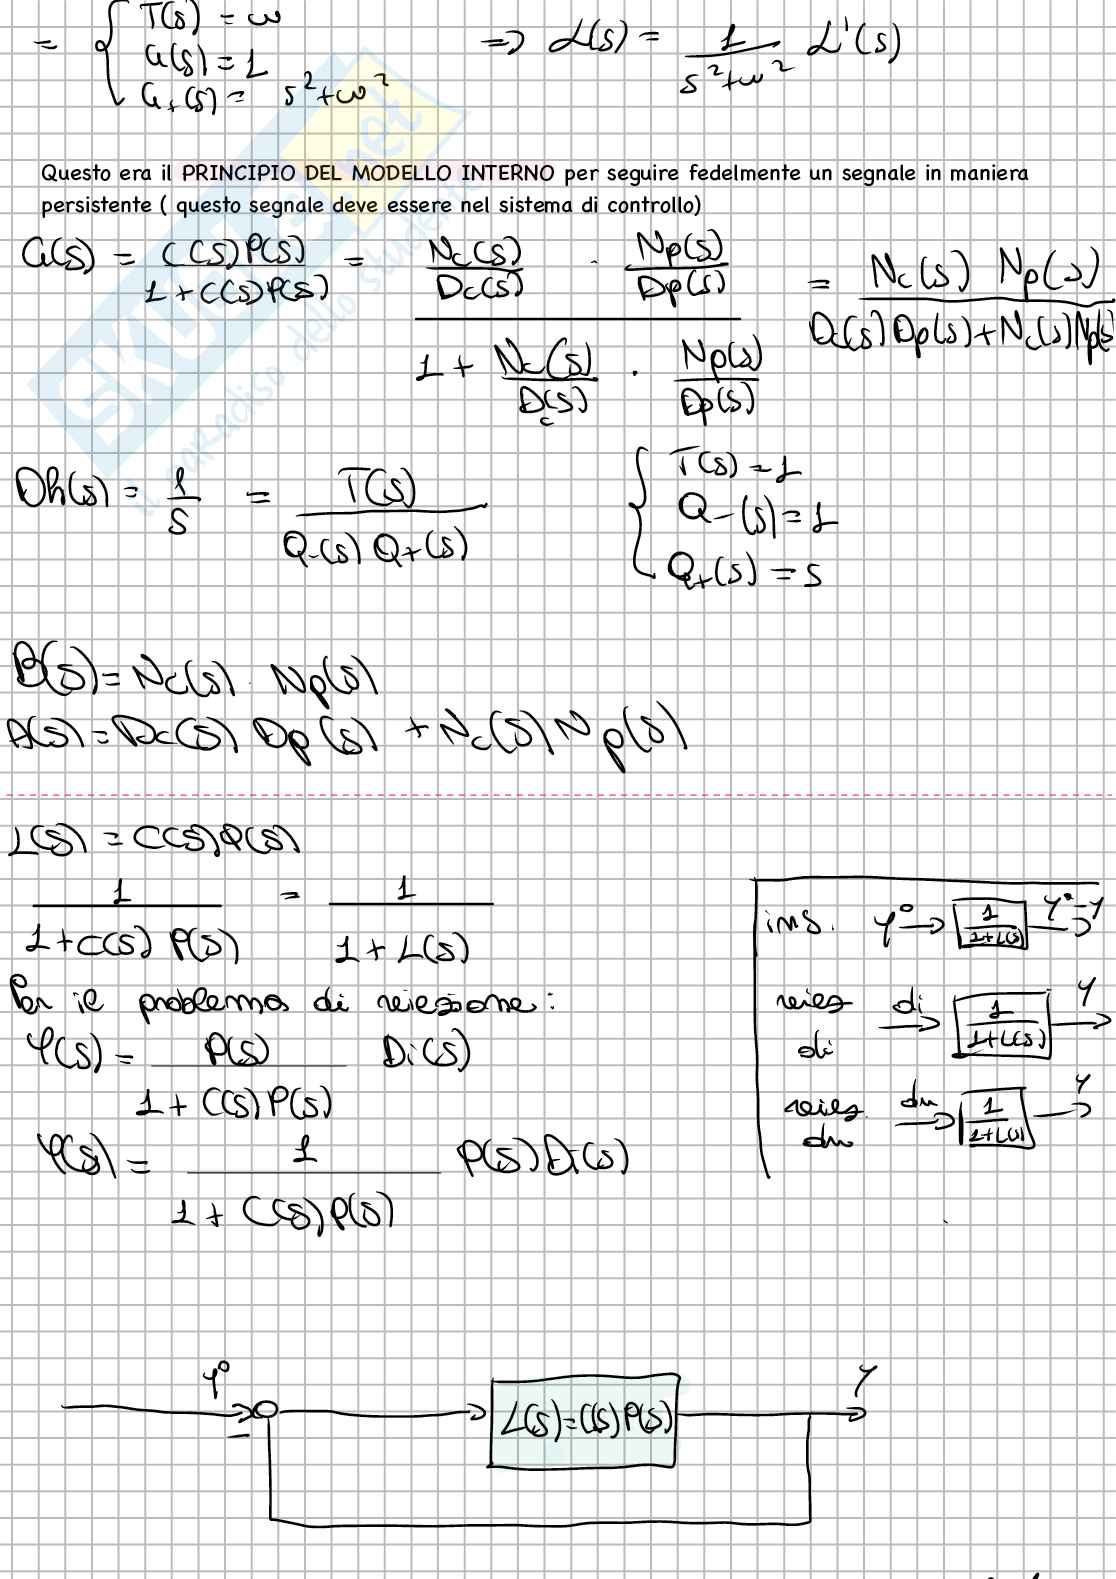 = { T(s) = ω
Q(s) = 1
Q+(s) = s²+ω²
=> L(s) = 1/(s²+ω²) L'(s)
Questo era il PRINCIPIO DEL MODELLO INTERNO per seguire fedelmente un segnale in maniera
persistente ( questo segnale deve essere nel sistema di controllo)
G(s) = C(s)P(s)/(1+C(s)P(s)) = (Nc(s)/Dc(s) · Np(s)/Dp(s))/(1 + Nc(s)/Dc(s) · Np(s)/Dp(s)) = Nc(s) Np(s)/(Dc(s)Dp(s)+Nc(s)Np(s)
Dh(s) = 1/s = T(s)/(Q-(s) Q+(s)) { T(s) = 1
Q-(s) = 1
Q+(s) = s
B(s) = Nc(s) · Np(s)
A(s) = Dc(s) Dp(s) + Nc(s) Np(s)
L(s) = C(s)P(s)
1/(1+C(s) P(s)) = 1/(1+L(s))
Per il problema di reiezione:
Y(s) = P(s)/(1+C(s)P(s)) Di(s)
Y(s) = 1/(1+C(s)P(s)) P(s)Di(s)
ins. y° → 1/(1+L(s)) y°-y →
reiez di → 1/(1+L(s)) y →
di
reiez. du → 1/(1+L(s)) y →
du
y° y
- L(s)=C(s)P(s)
SKUOLA.net
il paradiso dello studente